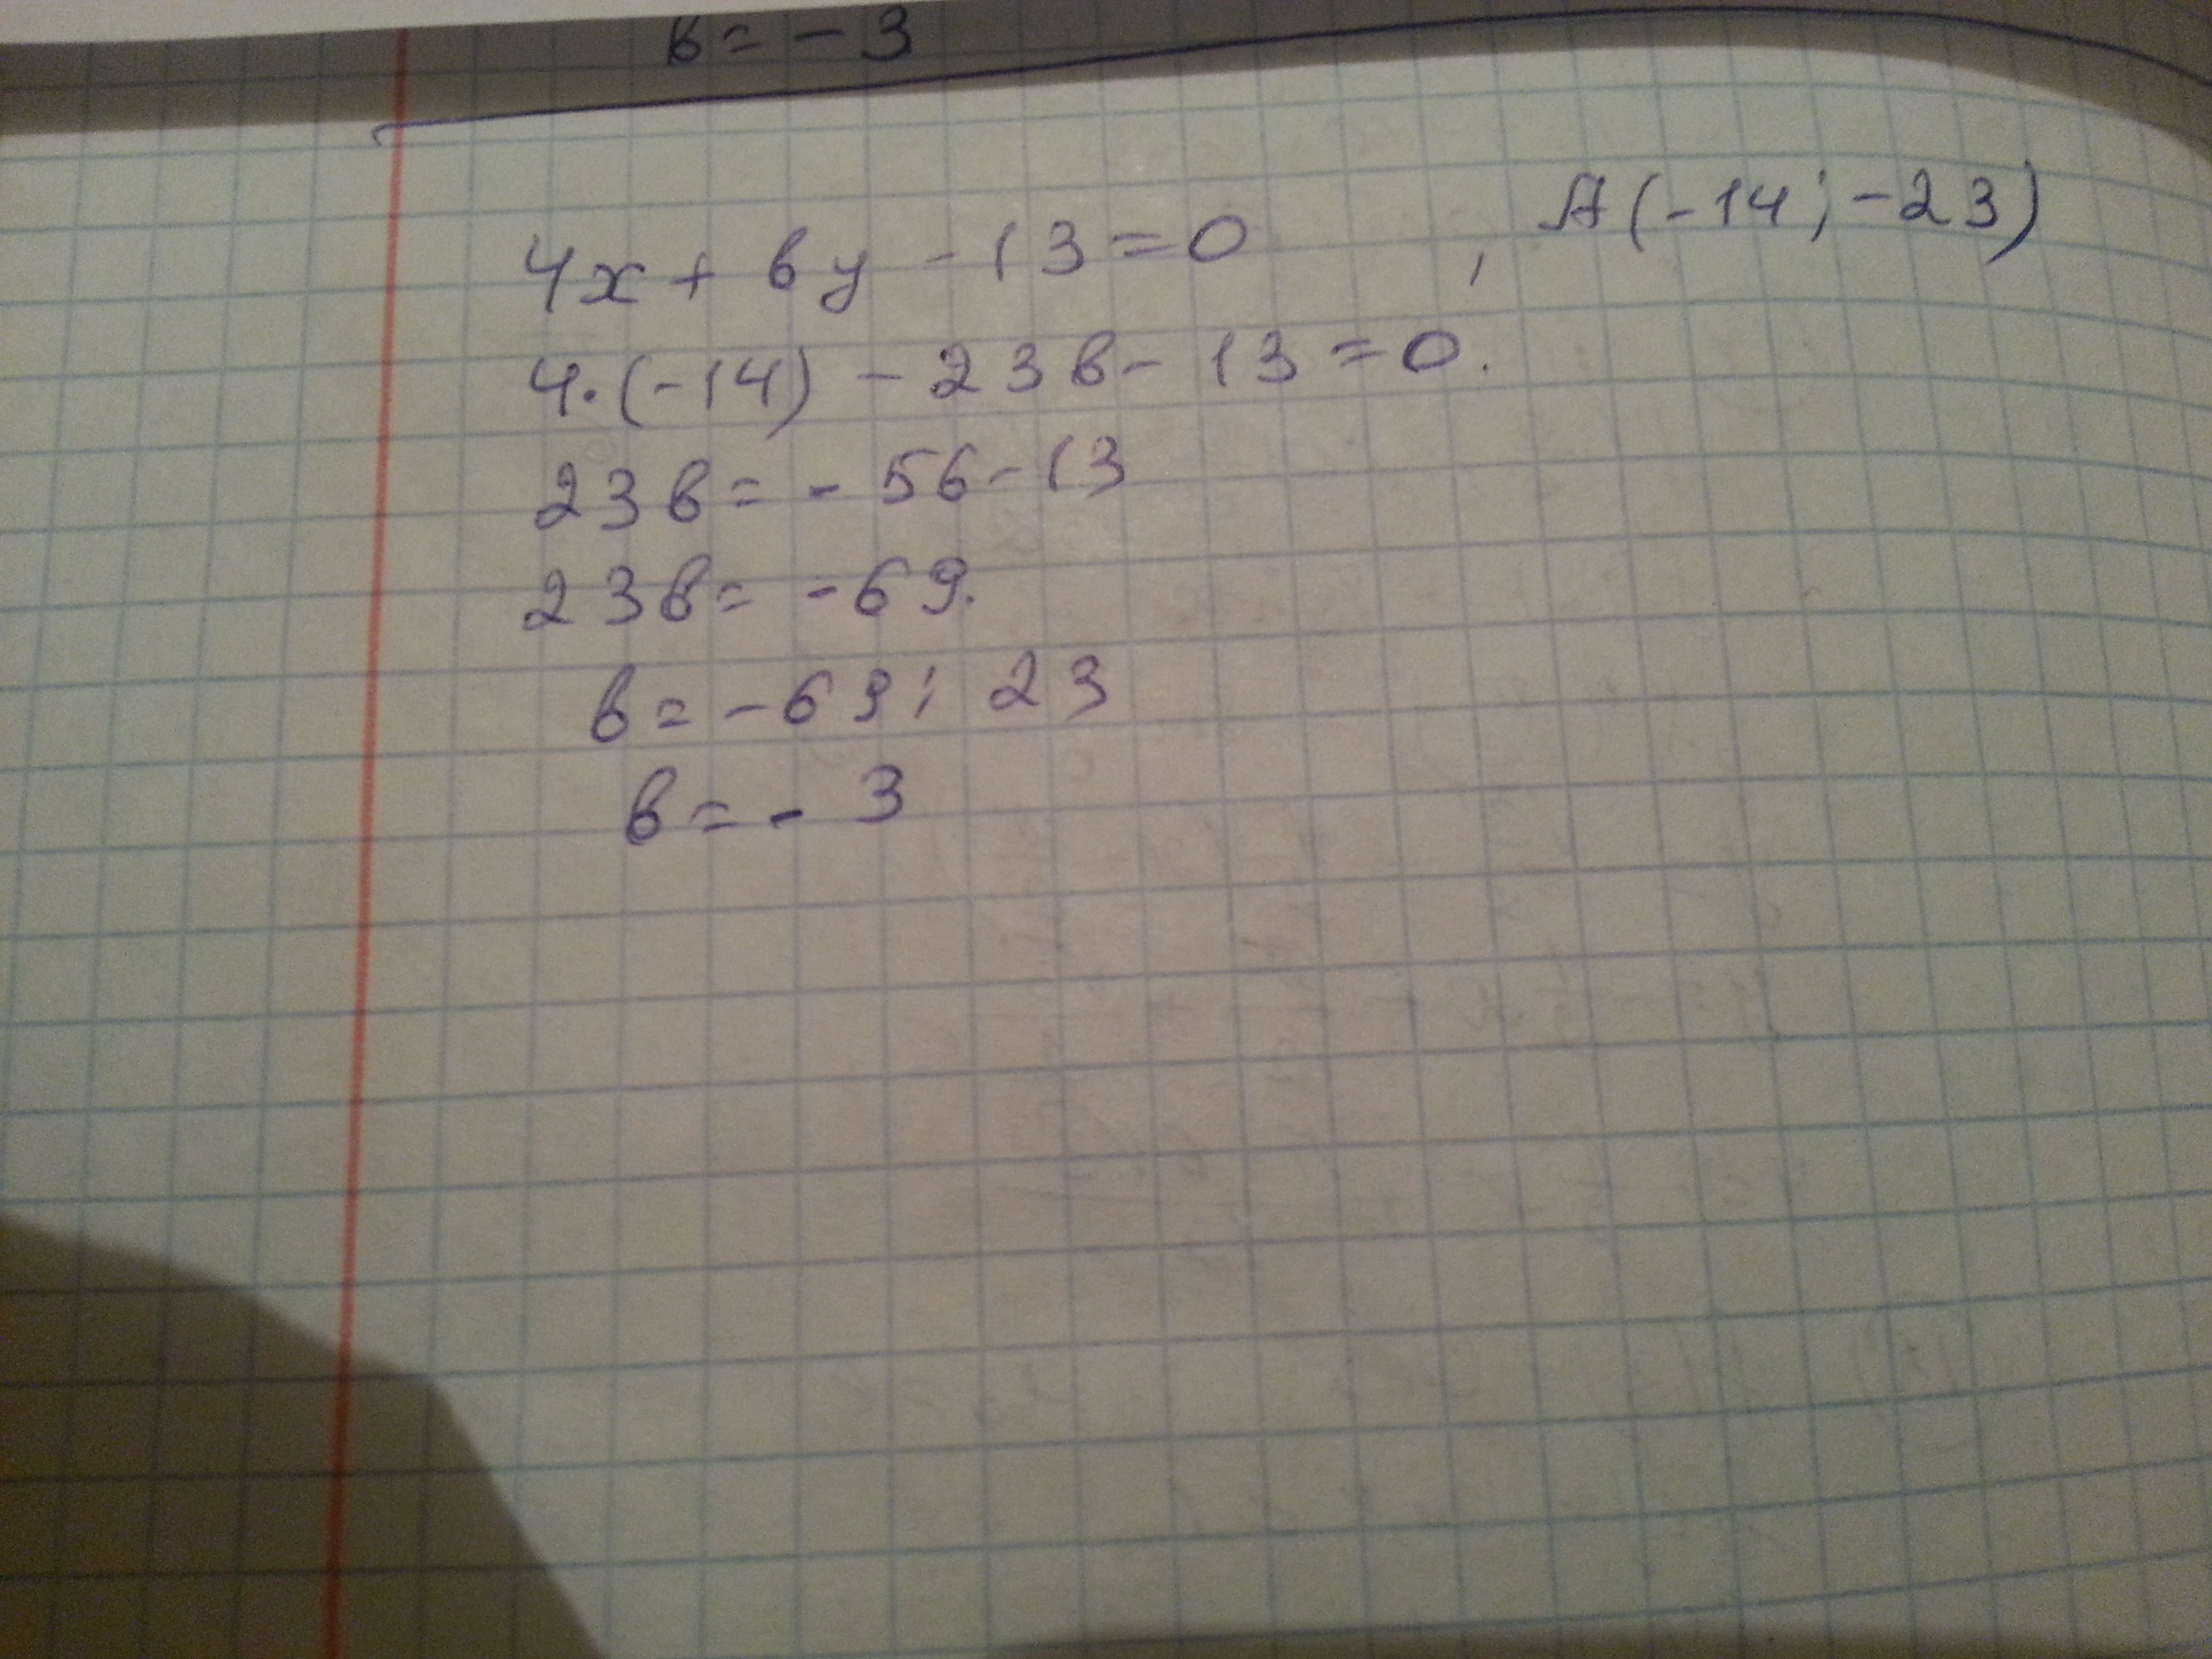 в = - 3
4x + вy - 13 = 0 , A(-14; -23)
4·(-14) - 23в - 13 = 0.
23в = - 56 - 13
23в = - 69.
в = - 69 : 23
в = - 3